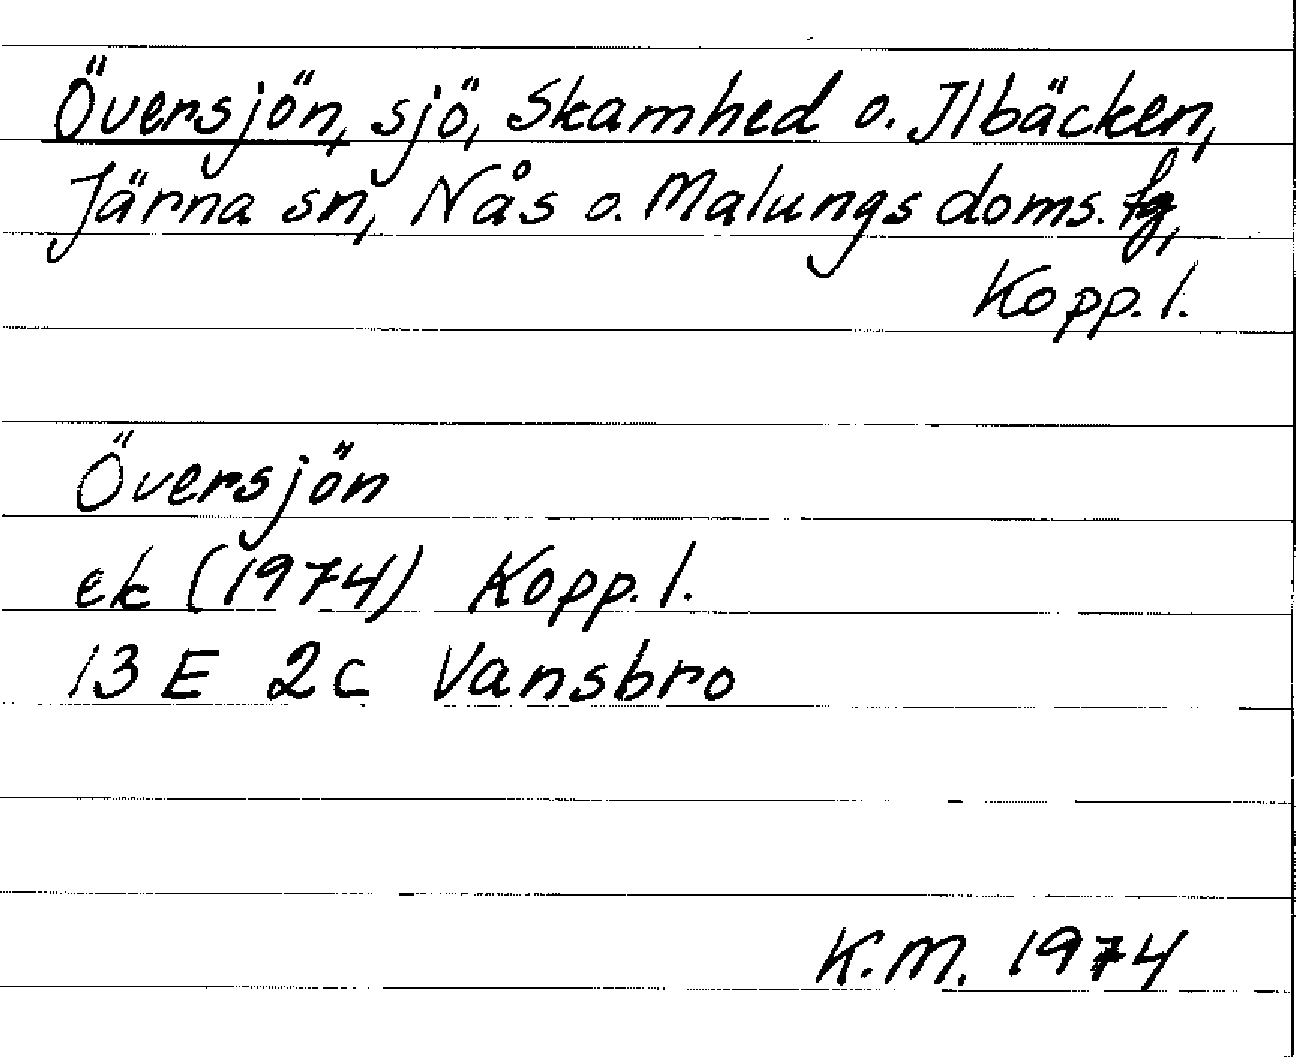 Översjön, sjö, Skamhed o. Ilbäcken,
Järna sn, Nås o. Malungs doms. fg,
Kopp. l.
Översjön
ek (1974) Kopp. l.
13 E 2c Vansbro
K.M. 1974